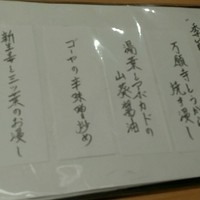 万願寺しょうがの
焼き浸し
湯葉とアボカドの
山葵醤油
ゴーヤの辛味噌炒め
新生姜と三つ葉のお浸し